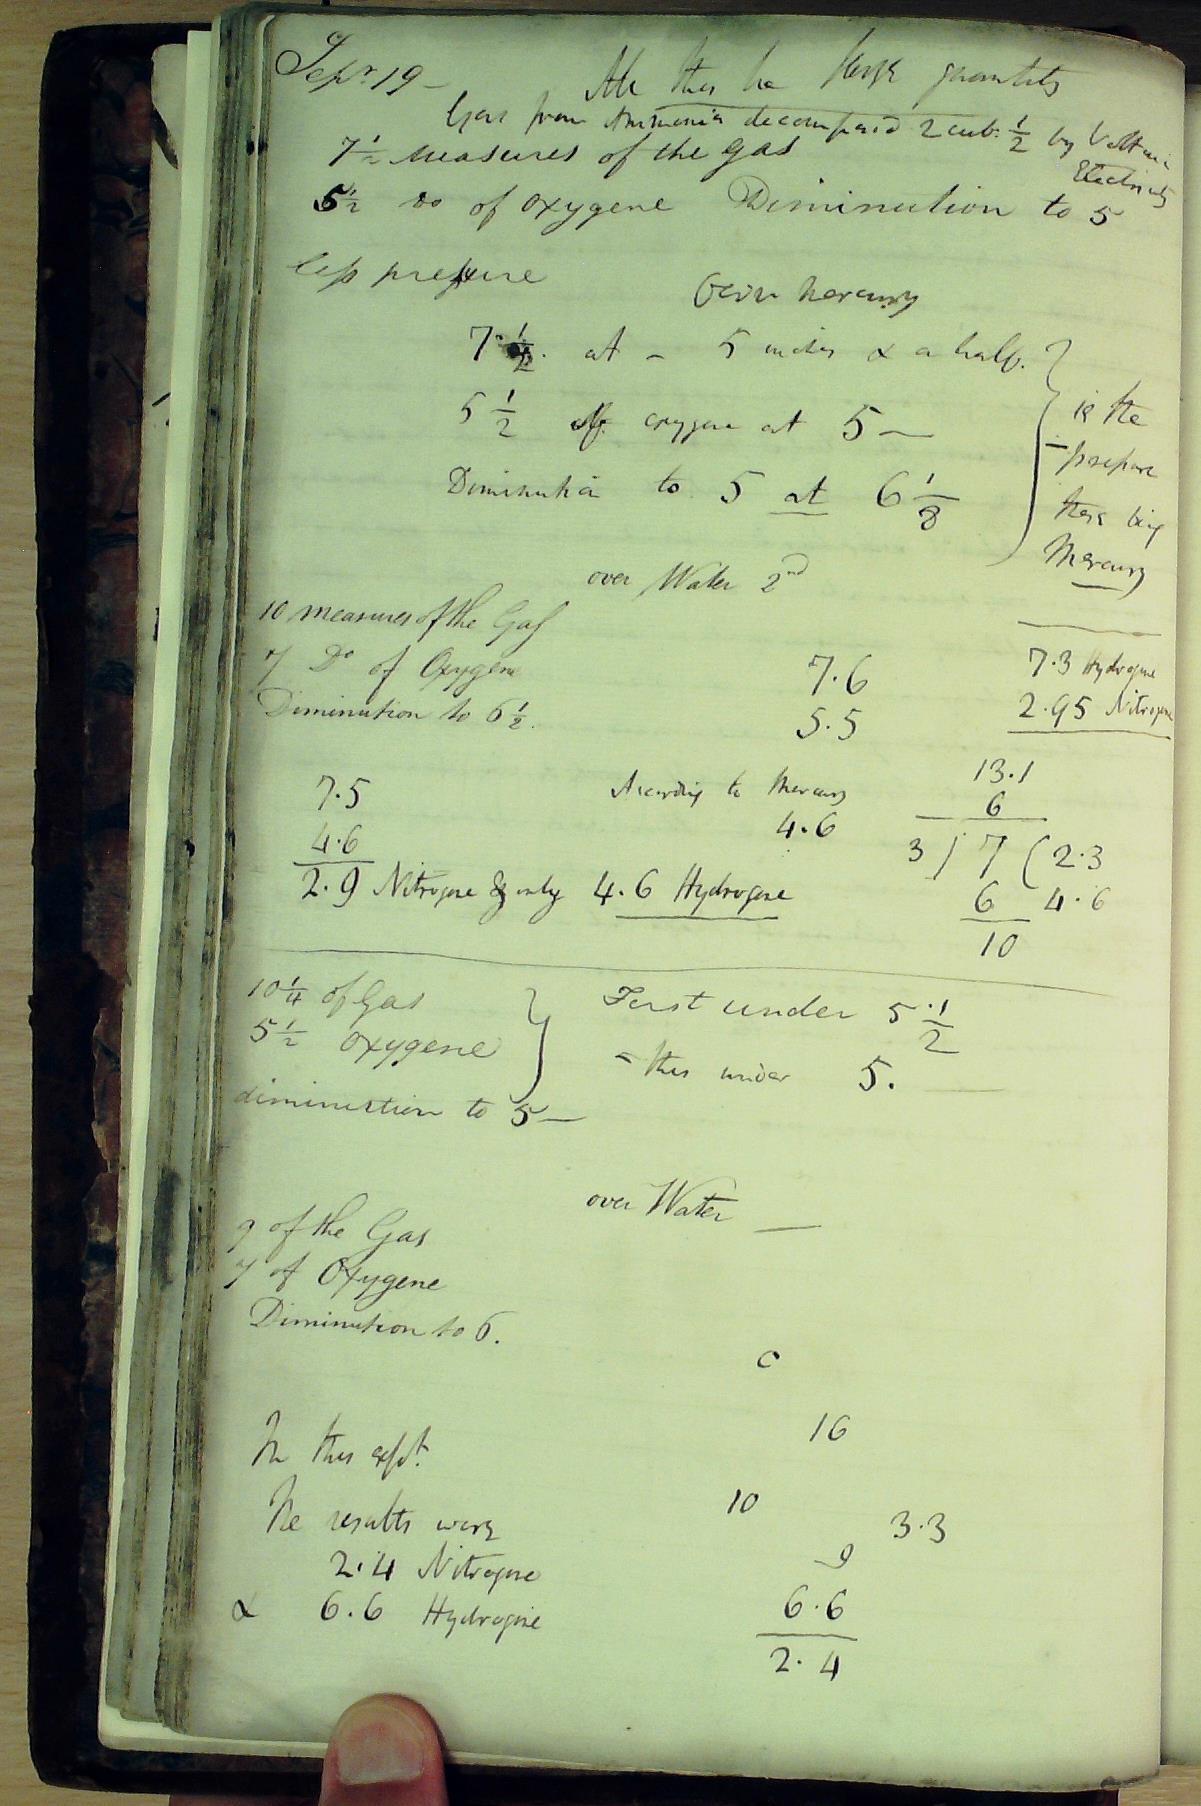 Sepr. 19 -
All this be large quantity
Gas from Ammonia decomposed 2 cub. 1/2 by Voltaic Electricity
7 1/2 measures of the gas
5 1/2 Do of oxygene Diminution to 5
less pressure
over mercury
7 1/2. at - 5 inches & a half.
5 1/2 of oxygene at 5 —
Diminution to 5 at 6 1/8
is the
pressure
there being
Mercury
over Water 2nd
10 measures of the Gas
7 Do of Oxygene
Diminution to 6 1/2.
7.6
5.5
7.3 Hydrogene
2.95 Nitrogene
7.5
4.6
2.9 Nitrogene & only 4.6 Hydrogene
According to Mercury
4.6
13.1
6
3 ) 7 ( 2.3
6 4.6
10
10 1/4 of Gas
5 1/2 oxygene
diminution to 5 —
First under 5 1/2
- this under 5.
over Water —
9 of the Gas
7 of Oxygene
Diminution to 6.
16
In this expt.
The results were
2.4 Nitrogene
& 6.6 Hydrogene
10
3.3
9
6.6
2.4